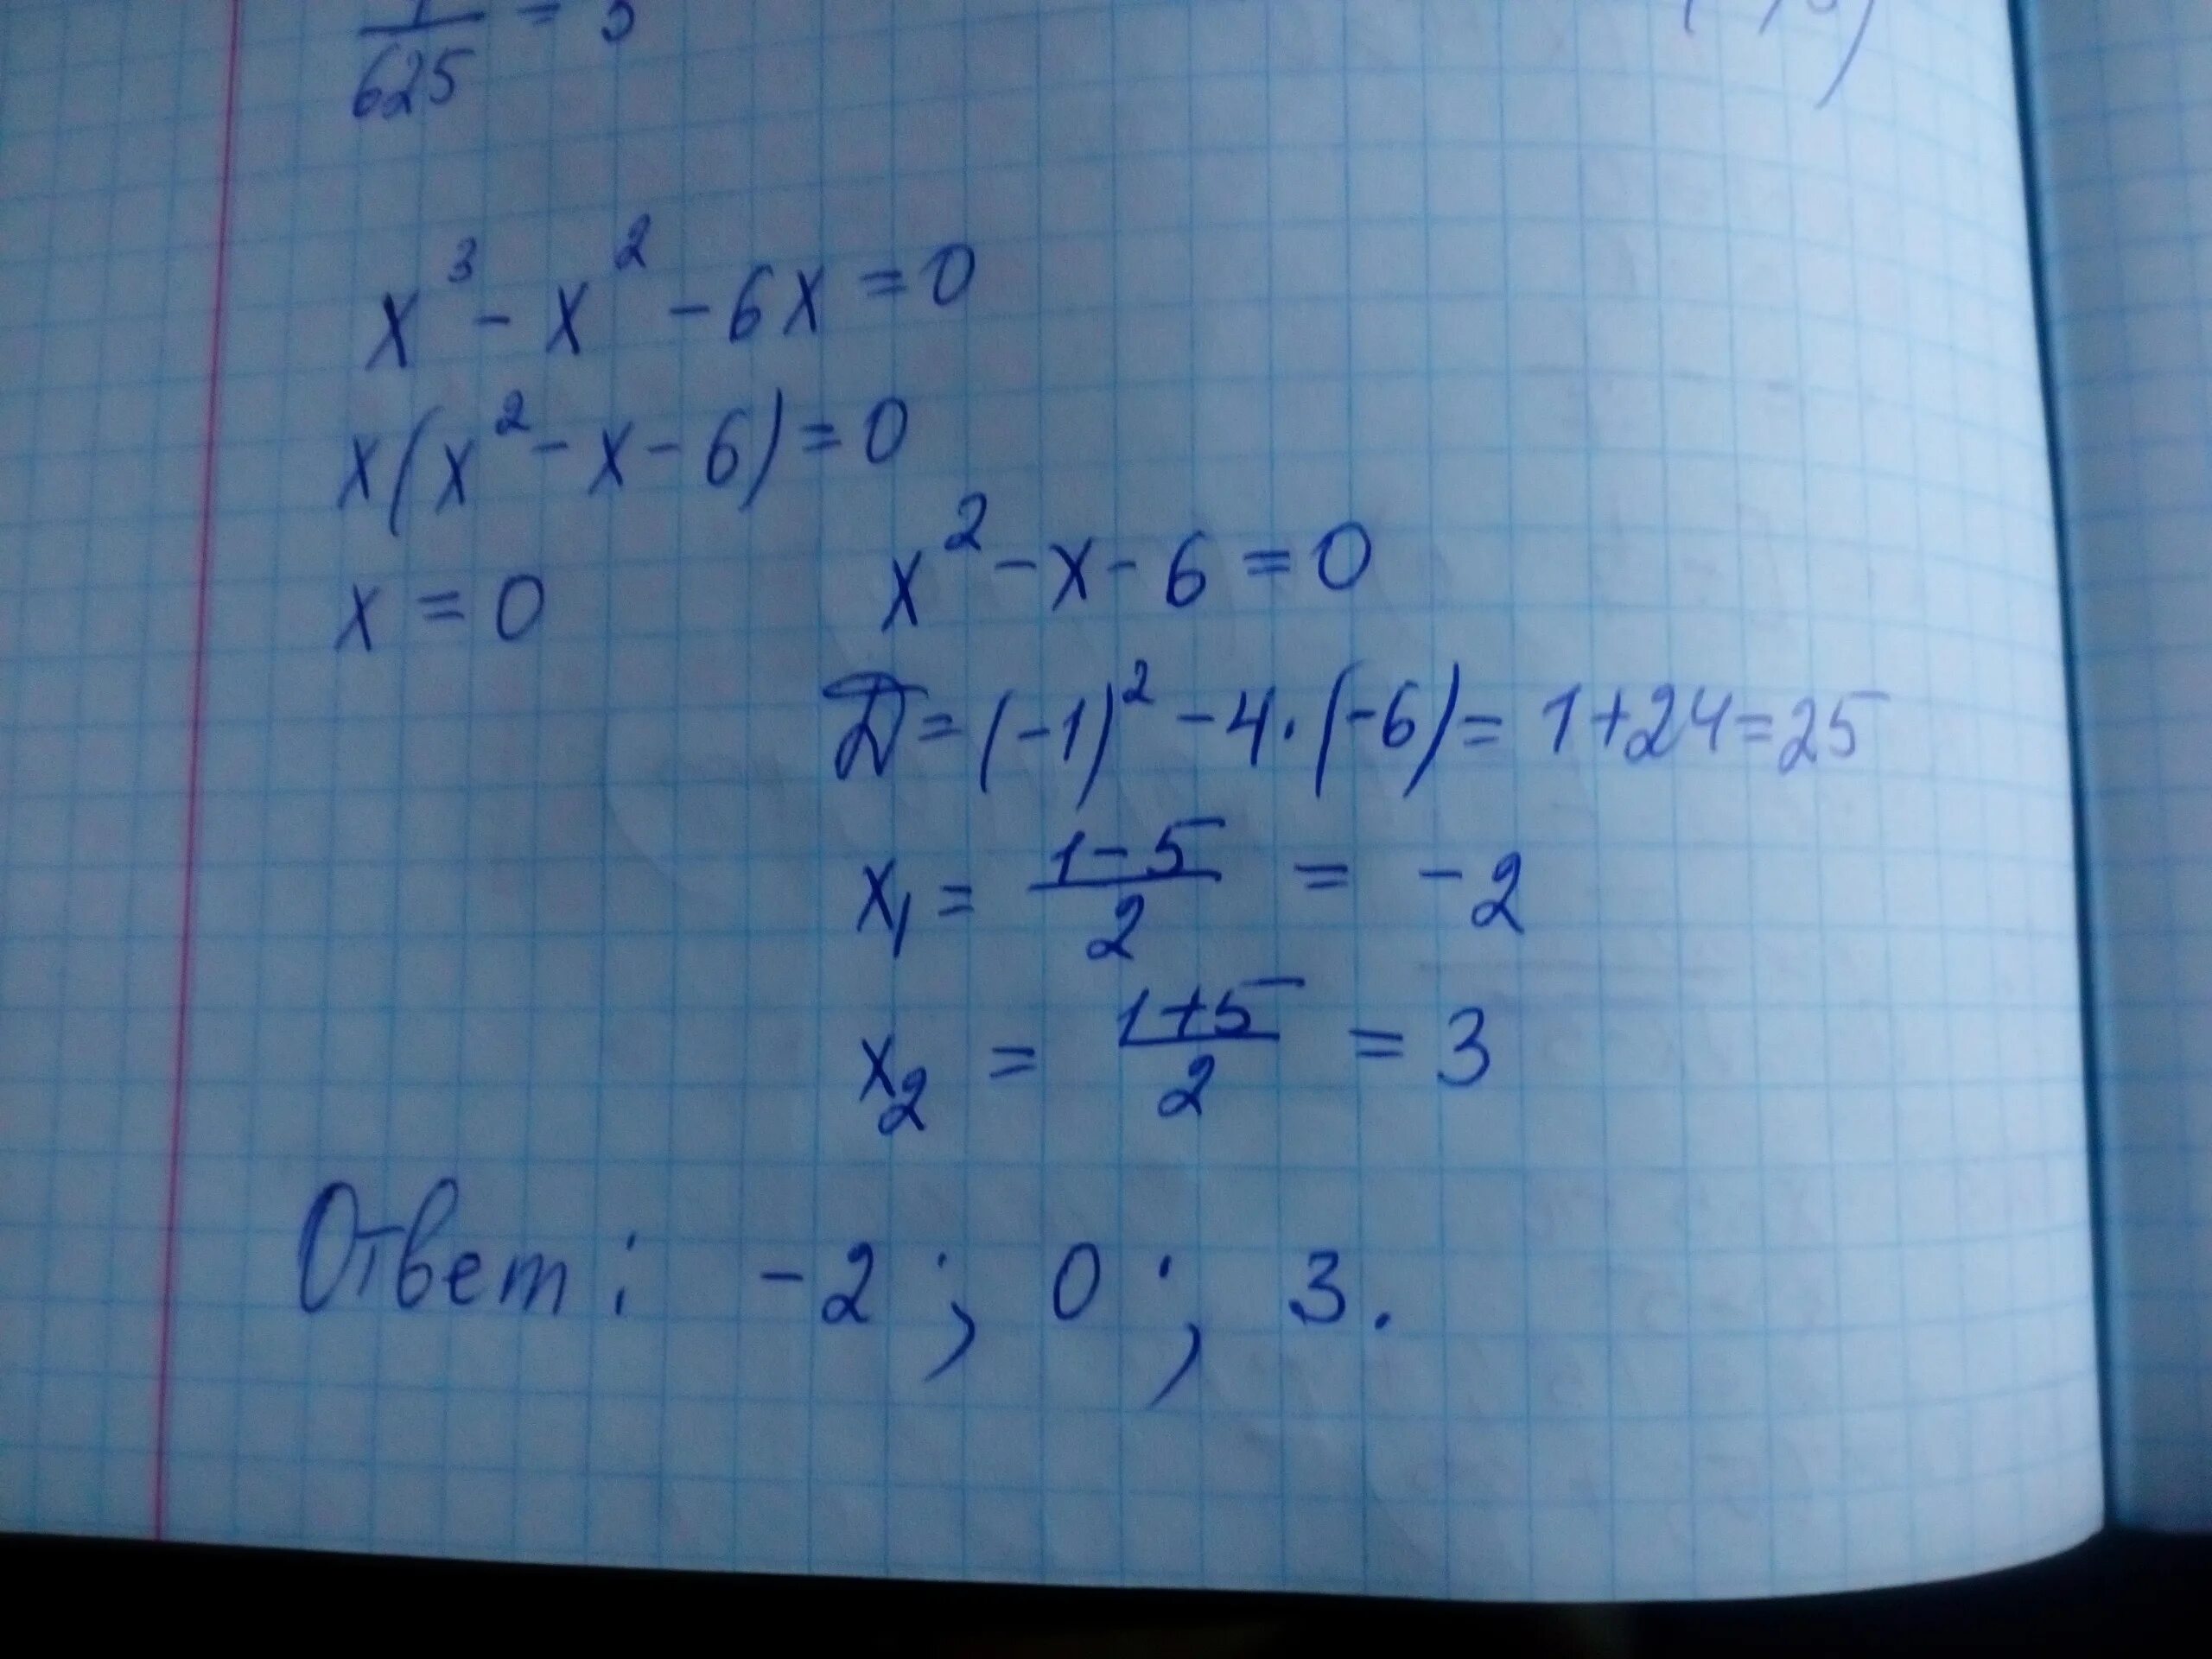 1/625 = 5
x³ - x² - 6x = 0
x(x² - x - 6) = 0
x = 0
x² - x - 6 = 0
D = (-1)² - 4·(-6) = 1+24=25
x₁ = (1-5)/2 = -2
x₂ = (1+5)/2 = 3
Ответ: -2; 0; 3.